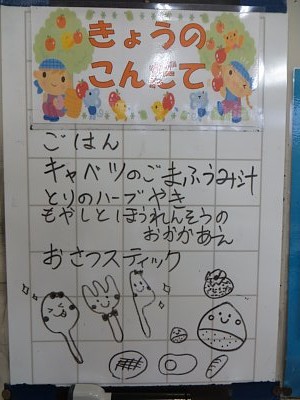 きょうの
こんだて
ごはん
キャベツのごまふうみ汁
とりのハーブやき
もやしとほうれんそうの
おかかあえ
おさつスティック